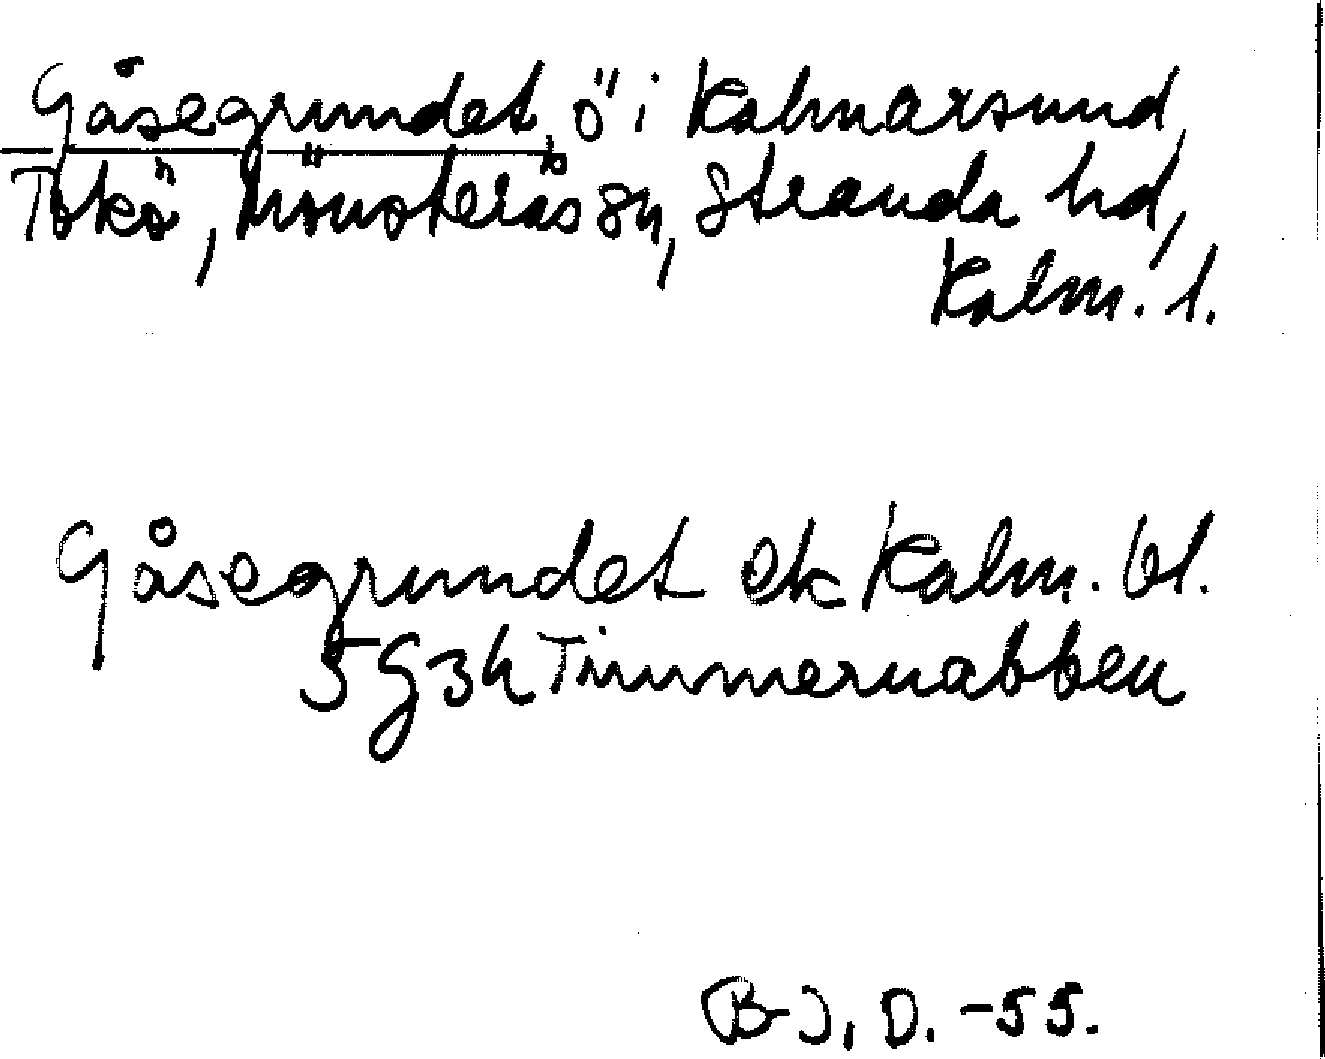 Gåsegrundet, ö i Kalmarsund,
Tokö, Mönsterås sn, Stranda hd,
Kalm. l.
Gåsegrundet ek Kalm. bl.
5G3h Timmernabben
B-J. D. -55.